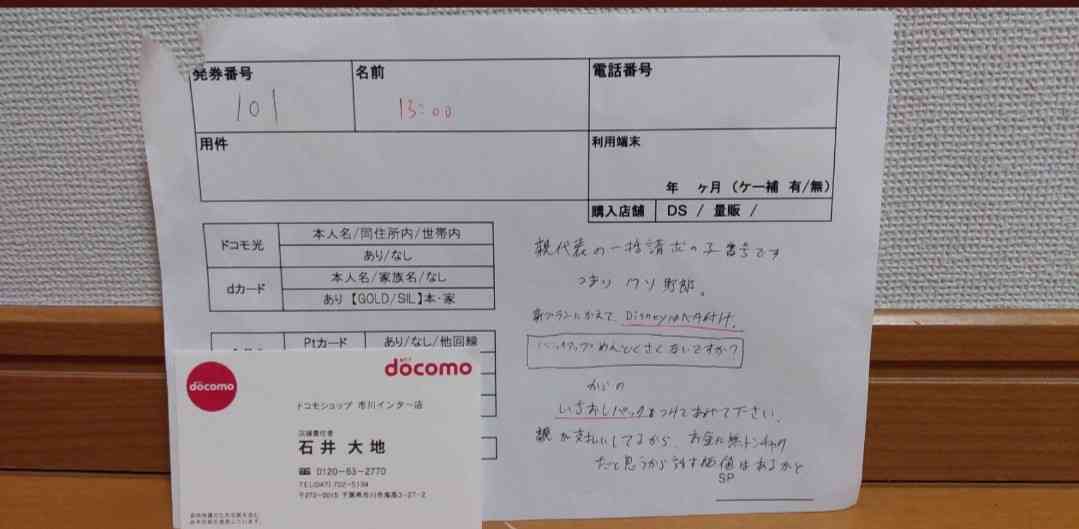 発券番号 名前 電話番号
101 13:00
用件 利用端末
年 ヶ月 (ケー補 有/無)
購入店舗 DS / 量販 /
ドコモ光 本人名/同住所内/世帯内
あり/なし
dカード 本人名/家族名/なし
あり【GOLD/SIL】本・家
Ptカード あり/なし/他回線
親代表の一括請求の子番号です
つまり クソ野郎。
新プランにかえて、Disneyはベタ付け、
バックアップめんどくさくないですか?
からの
いちおしパックをつけてあげて下さい。
親が支払いしてるから、お金に無トンチャク
だと思うから話す価値はあるかと
SP
docomo
docomo
ドコモショップ 市川インター店
店舗責任者
石井 大地
0120-63-2770
TEL(047)702-5134